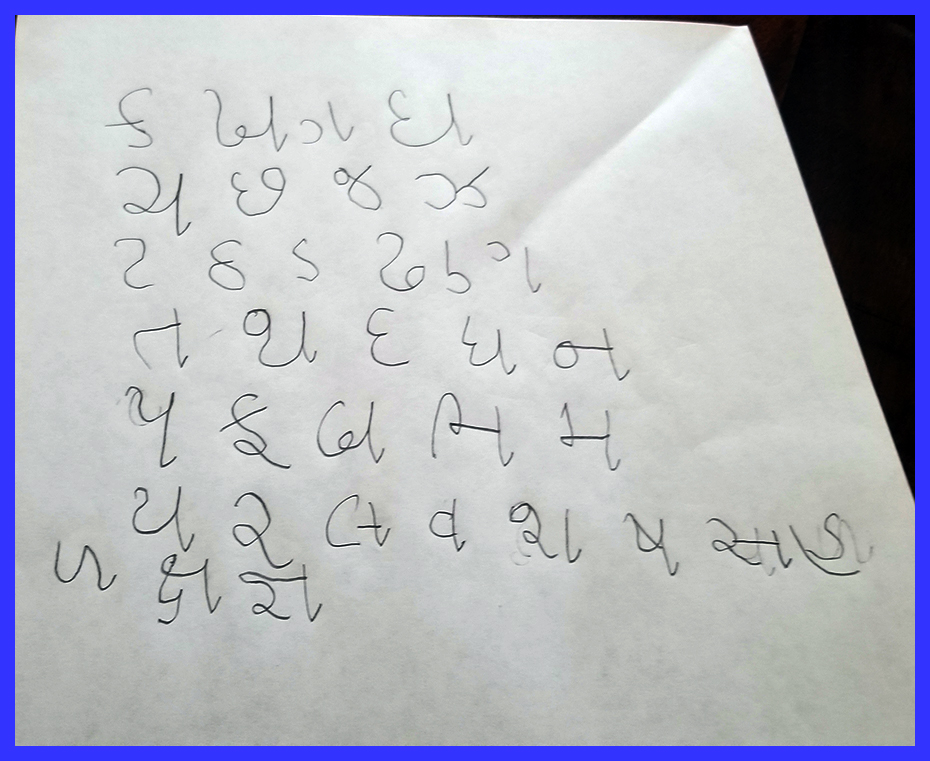 ક ખ ગ ઘ
ચ છ જ ઝ
ટ ઠ ડ ઢ ણ
ત થ દ ધ ન
પ ફ બ ભ મ
ય ર લ વ શ ષ સ હ
ળ ક્ષ જ્ઞ